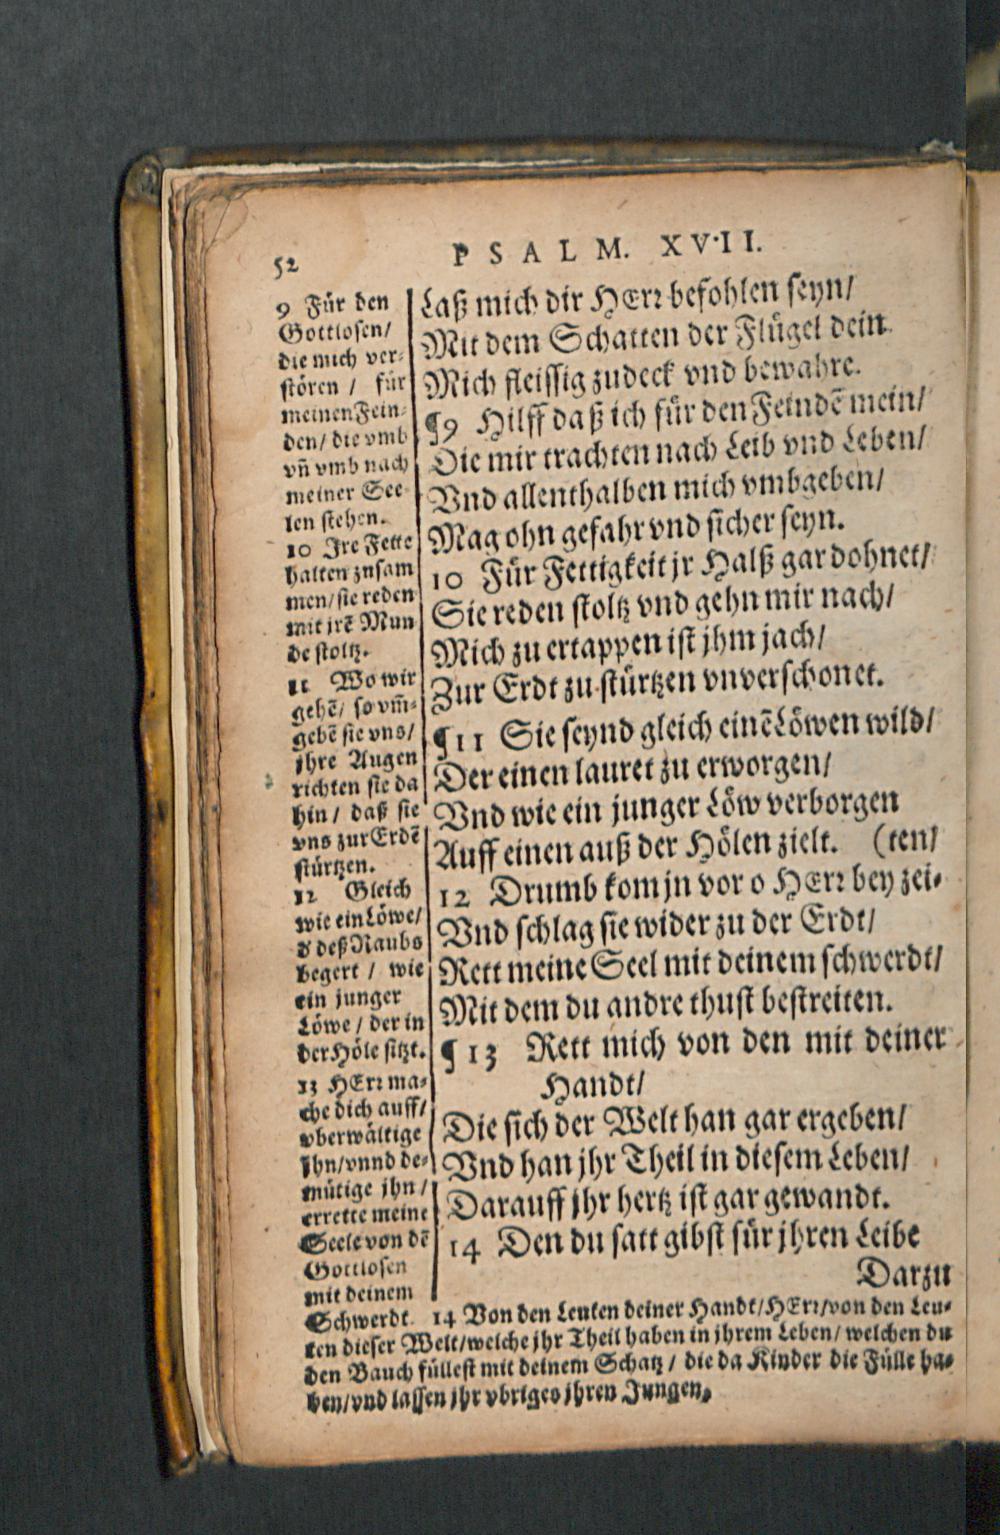 52
PSALM. XVII.
9 Für den
Gottlosen/
die mich ver-
stören / für
meinen Fein-
den/ die vmb
vñ vmb nach
meiner See-
len stehen.
10 Ire Fette
halten zusam
men/ sie reden
mit jrẽ Mun
de stoltz.
11 Wo wir
gehẽ/ so vm̃-
gebẽ sie vns/
jhre Augen
richten sie da
hin/ daß sie
vns zur Erdẽ
stürtzen.
12 Gleich
wie ein Löwe/
d' deß Raubs
begert / wie
ein junger
Löwe / der in
der Höle sitzt.
13 HErr ma-
che dich auff/
vberwältige
jhn/ vnnd de-
mütige jhn/
errette meine
Seele von dẽ
Gottlosen
mit deinem
Schwerdt. 14 Von den Leuten deiner Handt/ HErr/ von den Leu-
ten dieser Welt/ welche jhr Theil haben in jhrem Leben/ welchen du
den Bauch füllest mit deinem Schatz / die da Kinder die Fülle ha-
ben/ vnd lassen jhr vbriges jhren Jungen.
Laß mich dir HErr befohlen seyn/
Mit dem Schatten der Flügel dein
Mich fleissig zudeck vnd bewahre.
¶9 Hilff daß ich für den Feindẽ mein/
Die mir trachten nach Leib vnd Leben/
Vnd allenthalben mich vmbgeben/
Mag ohn gefahr vnd sicher seyn.
10 Für Fettigkeit jr Halß gar dohnet/
Sie reden stoltz vnd gehn mir nach/
Mich zu ertappen ist jhm jach/
Zur Erdt zu stürtzen vnverschonet.
¶11 Sie seynd gleich einẽ Löwen wild/
Der einen lauret zu erworgen/
Vnd wie ein junger Löw verborgen
Auff einen auß der Hölen zielt. (ten/
12 Drumb kom jn vor o HErr bey zei-
Vnd schlag sie wider zu der Erdt/
Rett meine Seel mit deinem schwerdt/
Mit dem du andre thust bestreiten.
¶13 Rett mich von den mit deiner
Handt/
Die sich der Welt han gar ergeben/
Vnd han jhr Theil in diesem Leben/
Darauff jhr hertz ist gar gewandt.
14 Den du satt gibst für jhren Leibe
Darzu